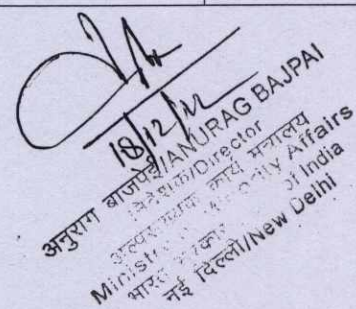 18/12/22
अनुराग बाजपेई/ANURAG BAJPAI
निदेशक/Director
अल्पसंख्यक कार्य मंत्रालय
Ministry of Minority Affairs
भारत सरकार of India
नई दिल्ली/New Delhi